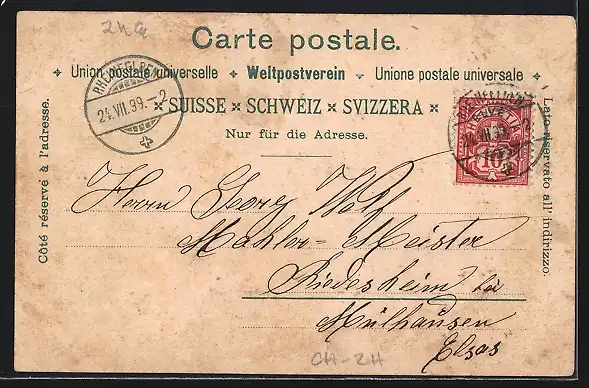 Carte postale.
Union postale universelle Weltpostverein Unione postale universale
SUISSE × SCHWEIZ × SVIZZERA ×
Nur für die Adresse.
Côté réservé à l'adresse.
Lato riservato all' indirizzo.
24.VII.99.-2
HELVETIA
10
Herrn Georg Wolf
Mahler-Meister
Riedesheim bei
Mülhausen
Elsas
CH-ZH